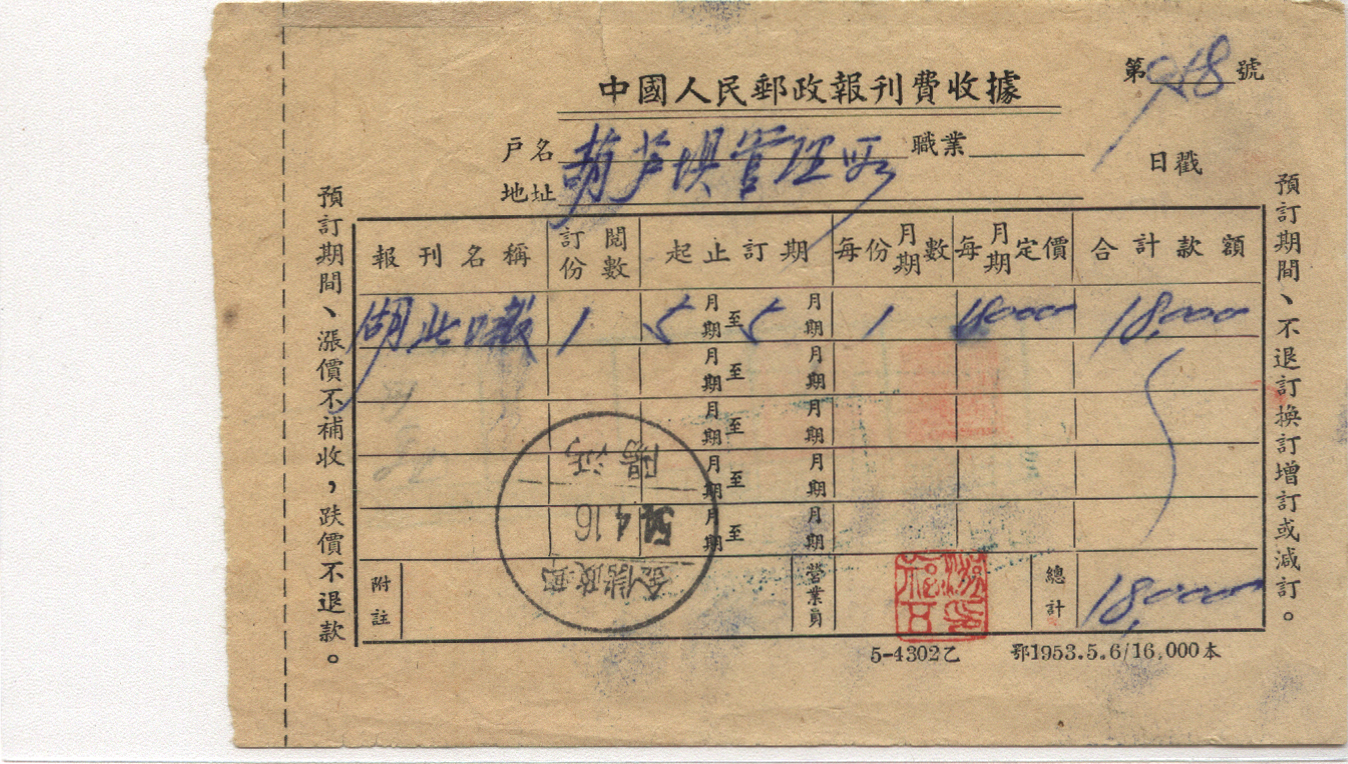 中國人民郵政報刊費收據
第918號
戶名 葫芦壩管理所 職業
地址
日戳
預訂期間、漲價不補收，跌價不退款。
報刊名稱 訂閱份數 起止訂期 每份月期數 每月期定價 合計款額
湖北日報 1 5月期至5月期 1 18000 18,000
月期至 月期
月期至 月期
月期至 月期
月期至 月期
附註 營業員 總計 18,000
預訂期間、不退訂換訂增訂或減訂。
54.4.16
郵政儲金
5-4302乙 鄂1953.5.6/16,000本